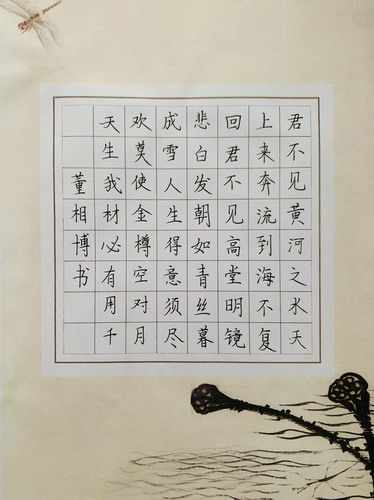 君不见黄河之水天
上来奔流到海不复
回君不见高堂明镜
悲白发朝如青丝暮
成雪人生得意须尽
欢莫使金樽空对月
天生我材必有用千
董相博书